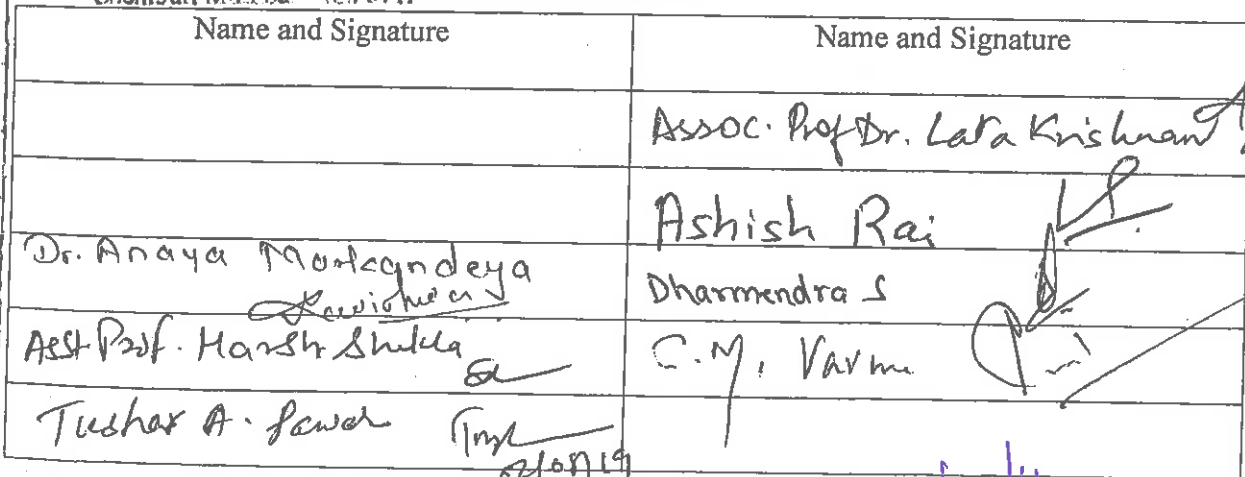 Name and Signature Name and Signature
Assoc. Prof Dr. Lata Krishnan
Ashish Rai
Dr. Anaya Markandeya Dharmendra S
Asst Prof. Harsh Shukla C.M. Varma
Tushar A. Pawar